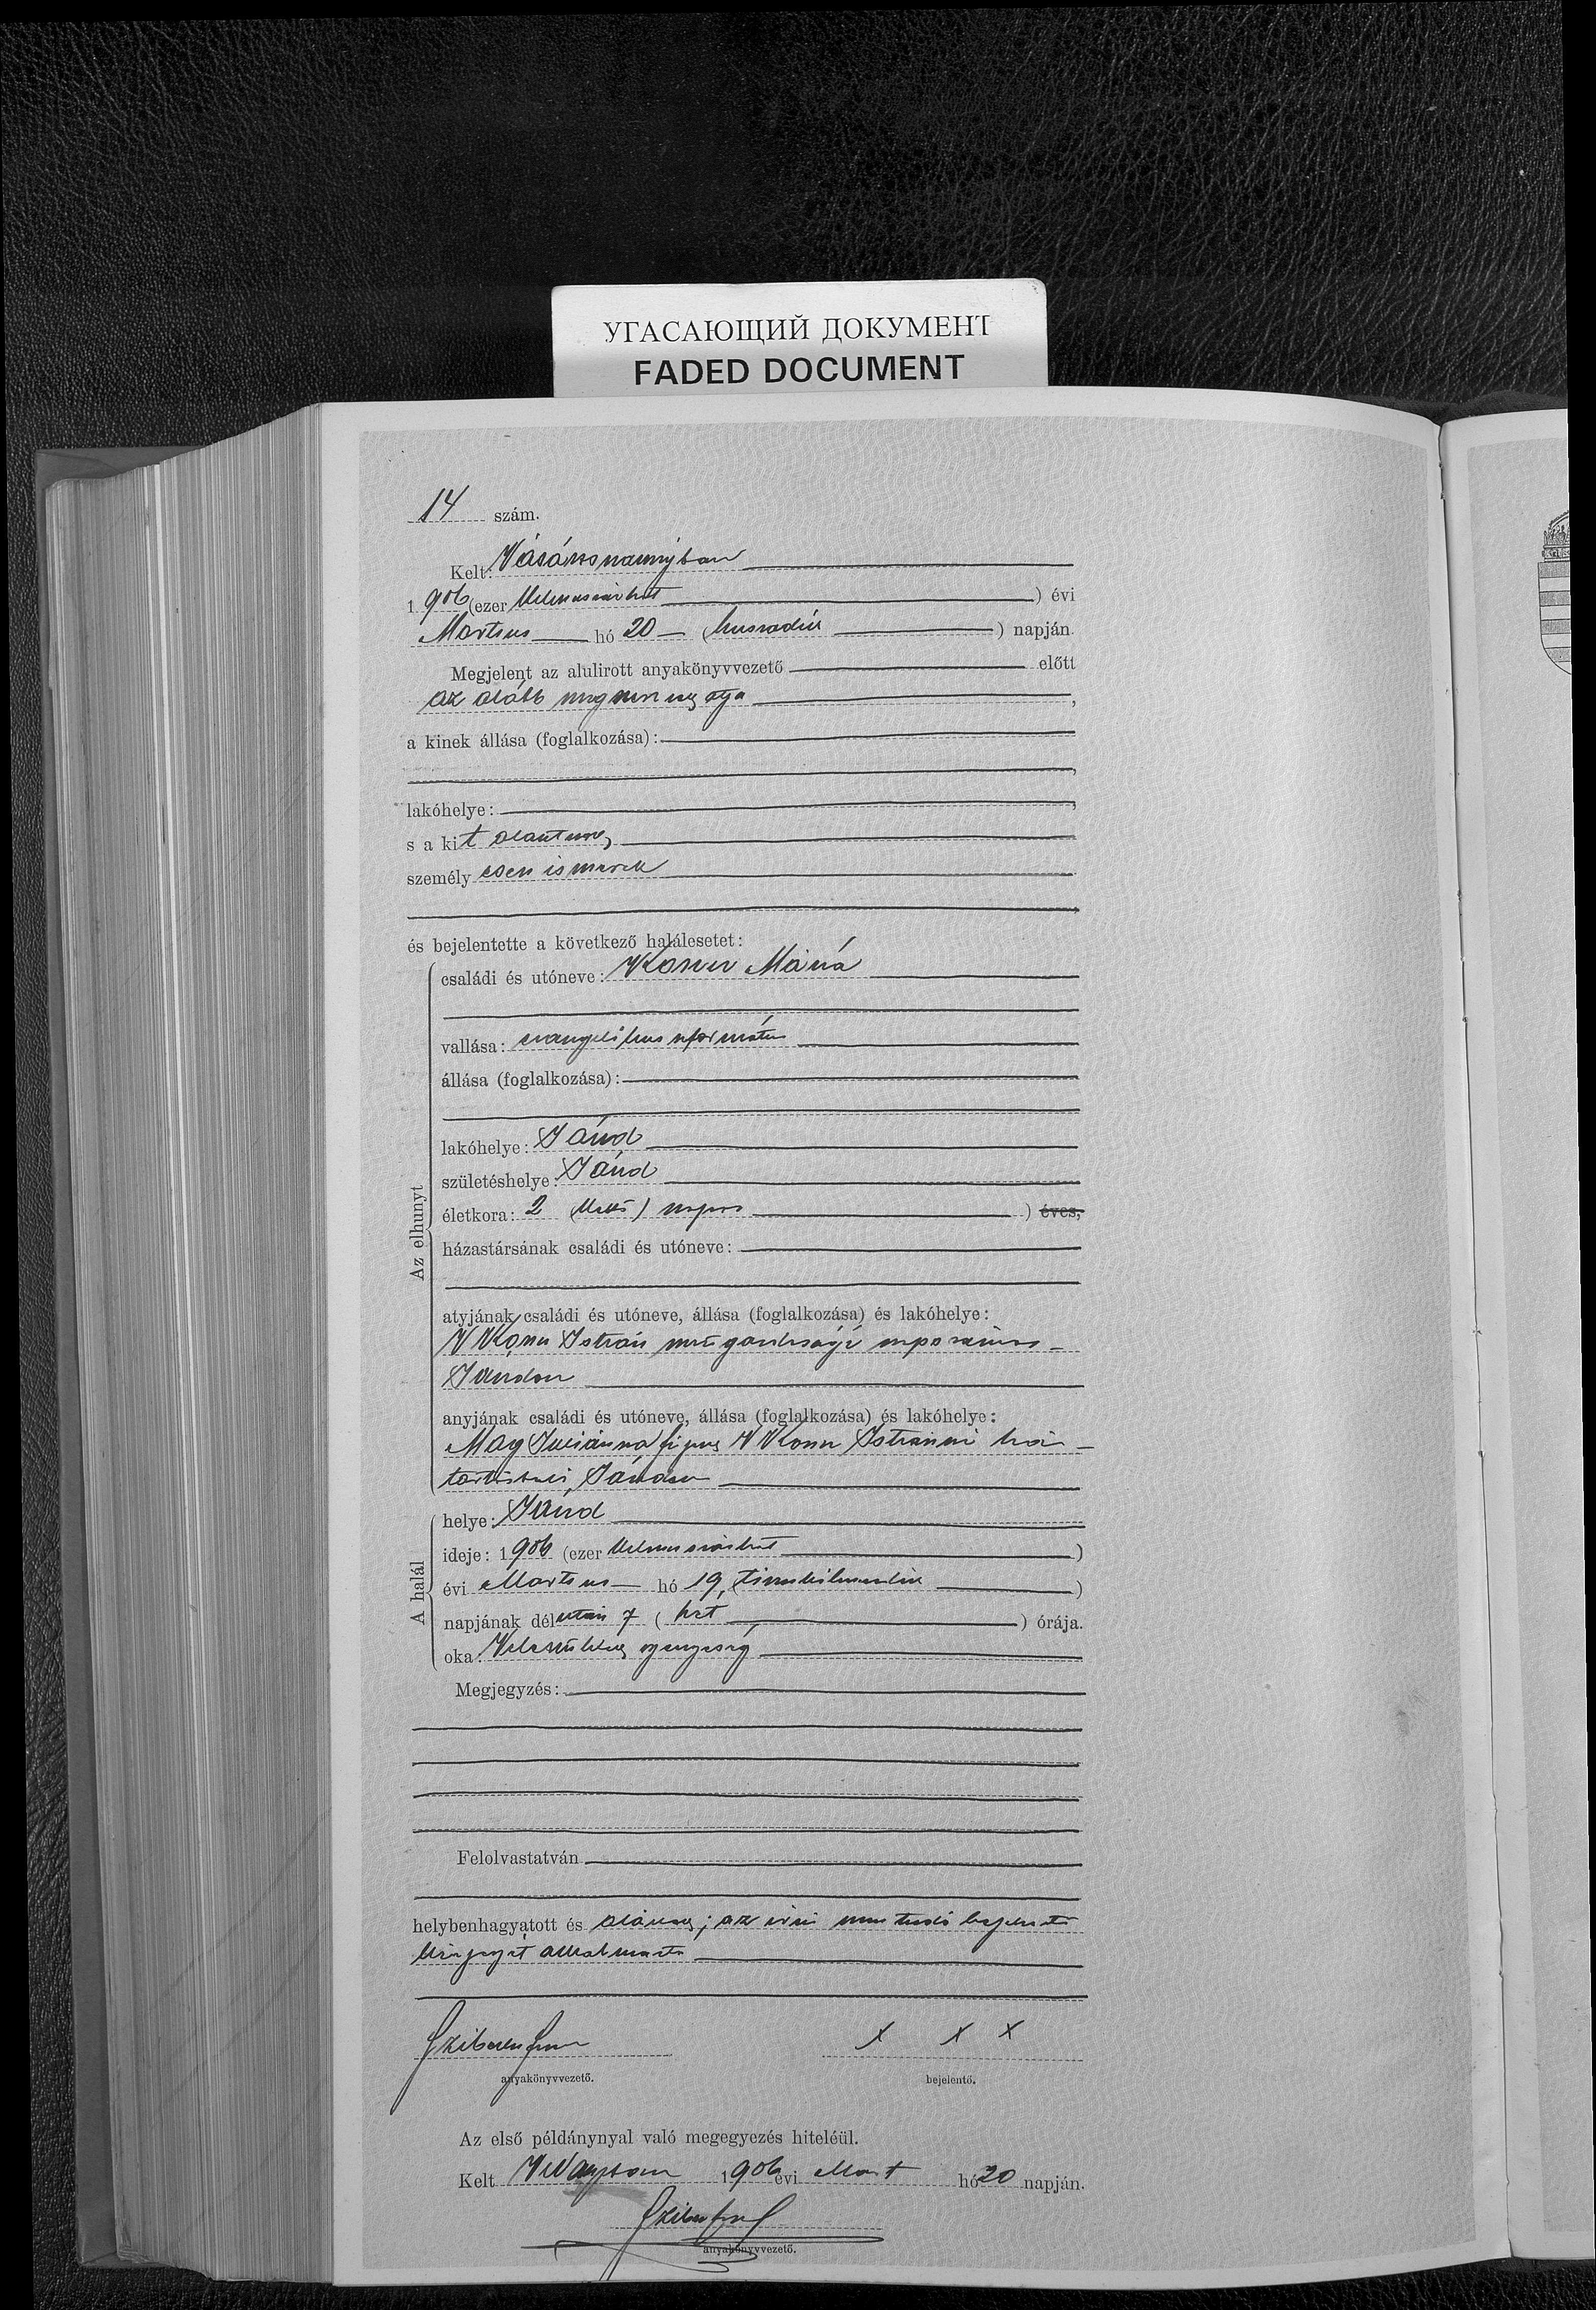 УГАСАЮЩИЙ ДОКУМЕНТ
FADED DOCUMENT
14 szám.
Kelt:
1 906 (ezer ) évi
Martius hó 20 ( ) napján.
Megjelent az alulirott anyakönyvvezető előtt
az alább megnevezett atya ,
a kinek állása (foglalkozása):
lakóhelye:
s a kit
személy ismerek
és bejelentette a következő halálesetet:
Az elhunyt
családi és utóneve: Mária
vallása: evangelikus református
állása (foglalkozása):
lakóhelye: Jánd
születéshelye: Jánd
életkora: 2 (kettő) napos ) éves,
házastársának családi és utóneve:
atyjának családi és utóneve, állása (foglalkozása) és lakóhelye:
István mezőgazdasági napszámos
Jándon
anyjának családi és utóneve, állása (foglalkozása) és lakóhelye:
Juliánna Istvánné ház-
tartásbeli, Jándon
A halál
helye: Jánd
ideje: 1 906 (ezer )
évi Martius hó 19, tizenkilencedik )
napjának délután 7 ( hét ) órája.
oka: Veleszületett gyengeség
Megjegyzés:
Felolvastatván
helybenhagyatott és aláírás; az írni nem tudó bejelentő
kézjegyét alkalmazta
x x x
anyakönyvvezető. bejelentő.
Az első példánynyal való megegyezés hiteléül.
Kelt 1906 évi Mart hó 20 napján.
anyakönyvvezető.